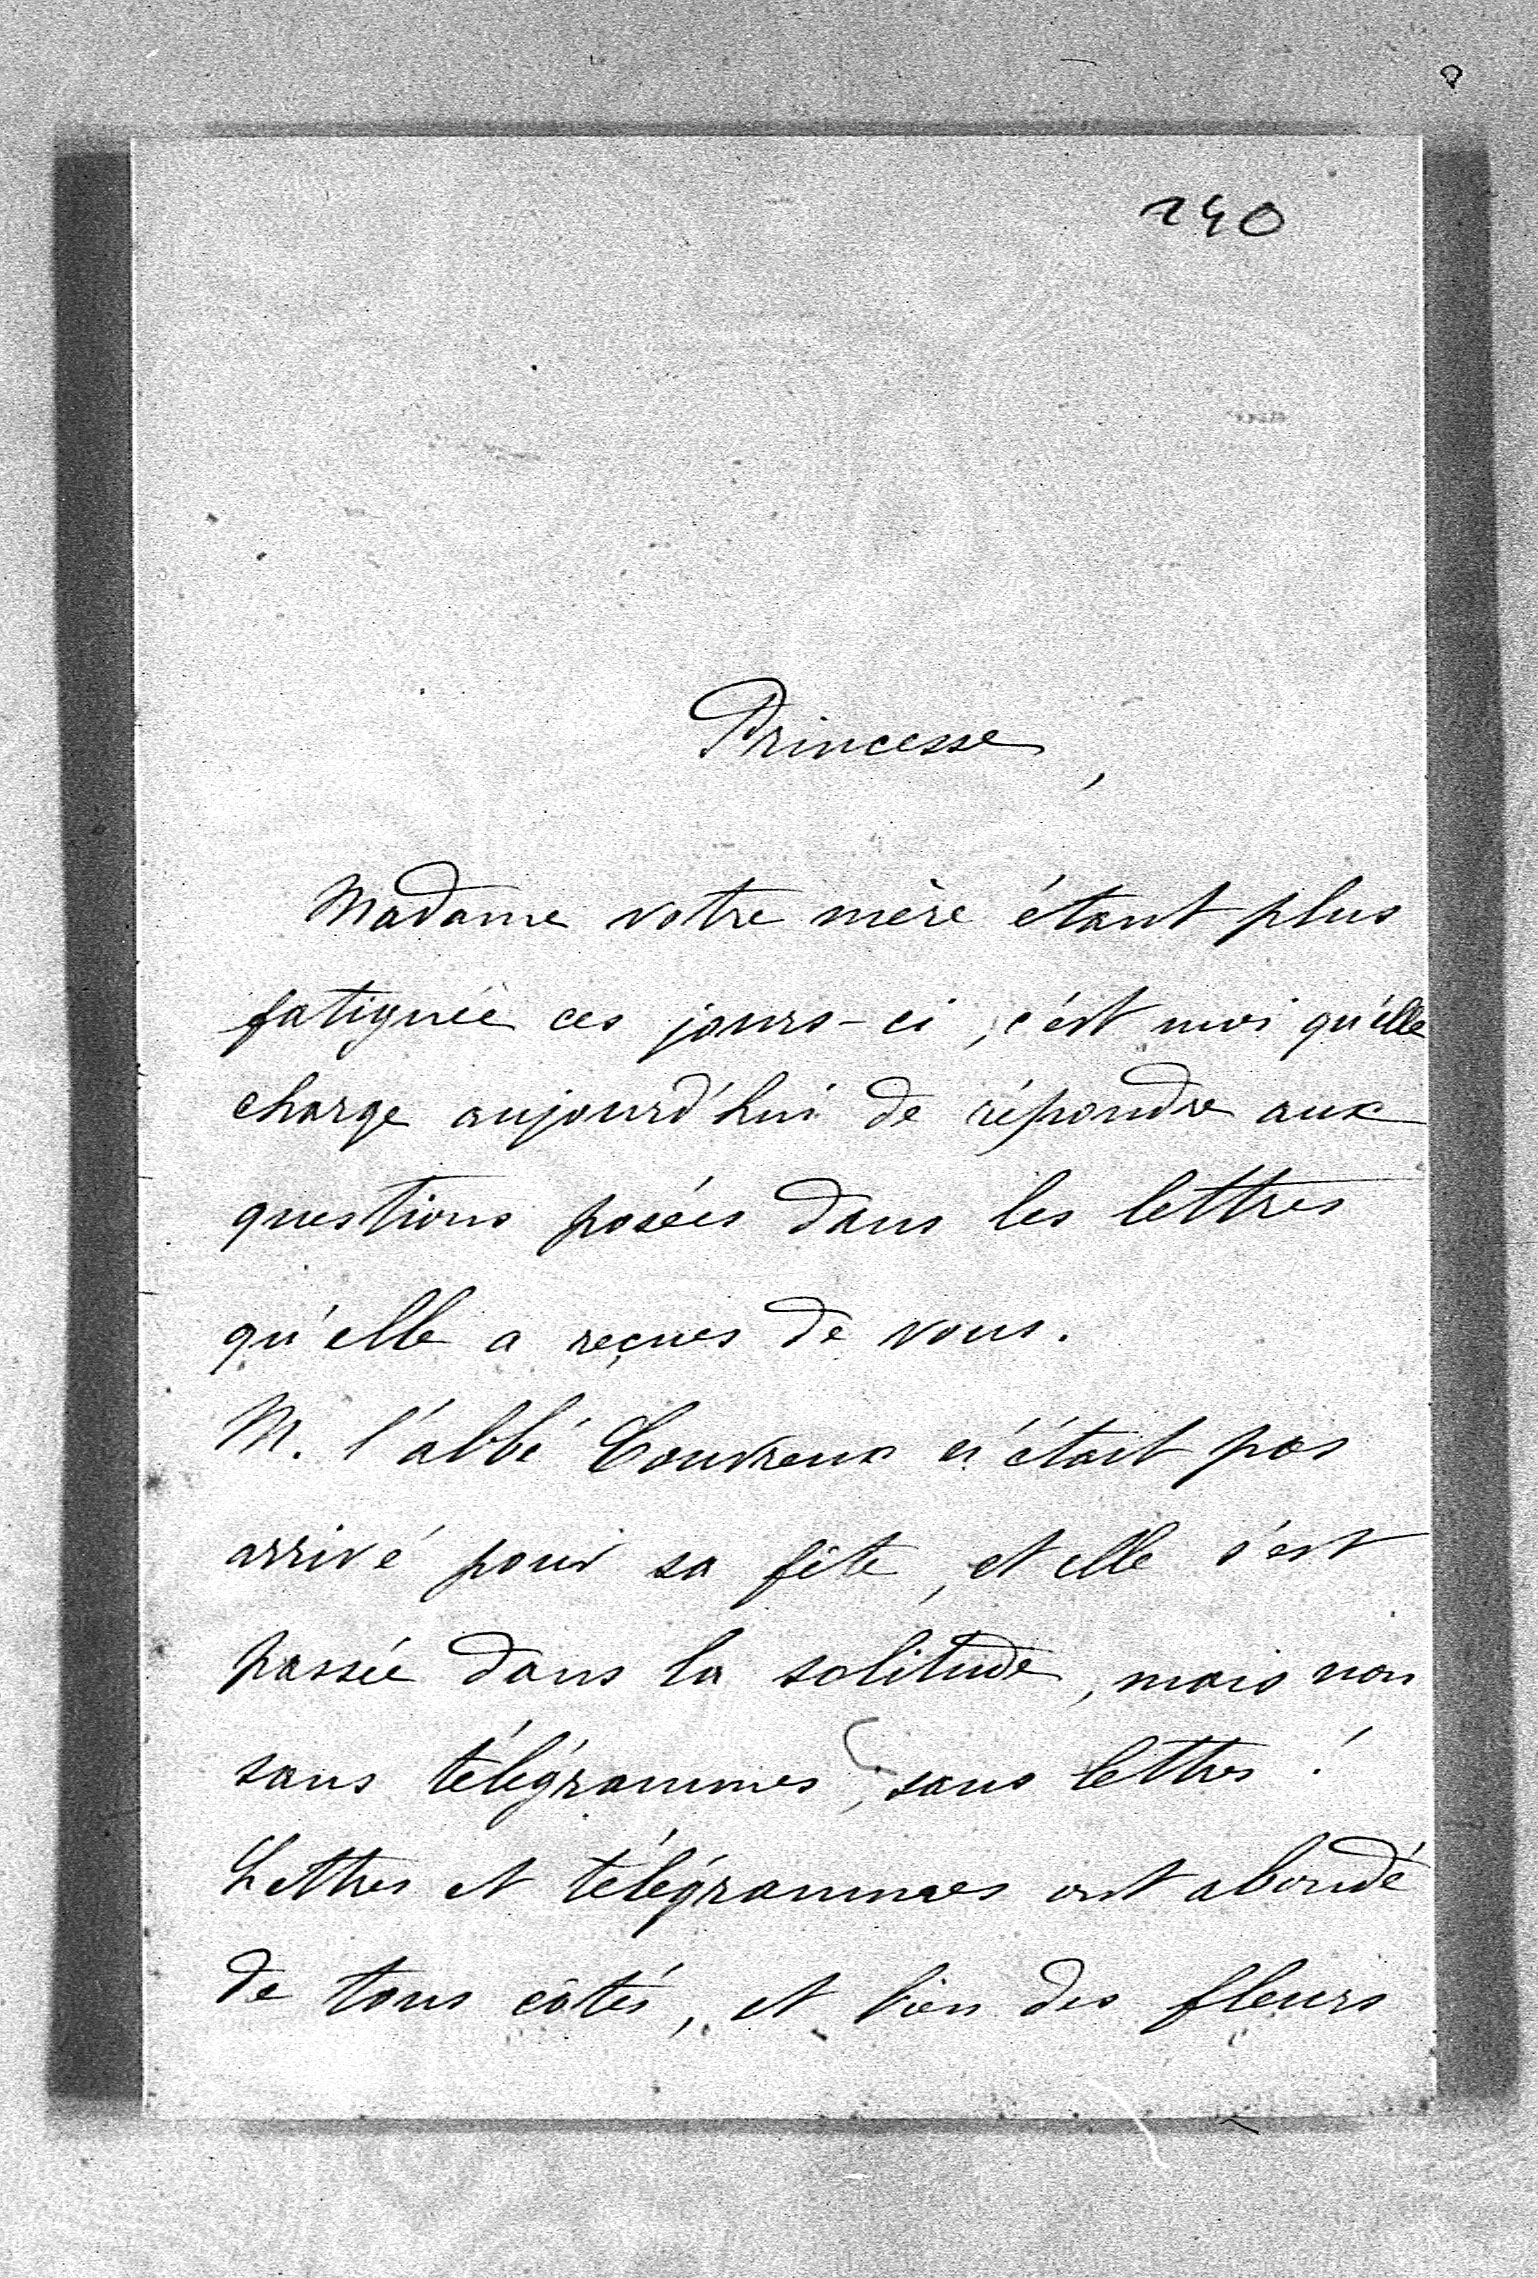 240
Princesse,
Madame votre mère étant plus
fatiguée ces jours-ci, c'est moi qu'elle
charge aujourd'hui de répondre aux
questions posées dans les lettres
qu'elle a reçues de vous.
M. l'abbé Couvreux n'était pas
arrivé pour sa fête, et elle s'est
passée dans la solitude, mais non
sans télégrammes, sans lettres !
Lettres et télégrammes ont abondé
de tous côtés, et bien des fleurs